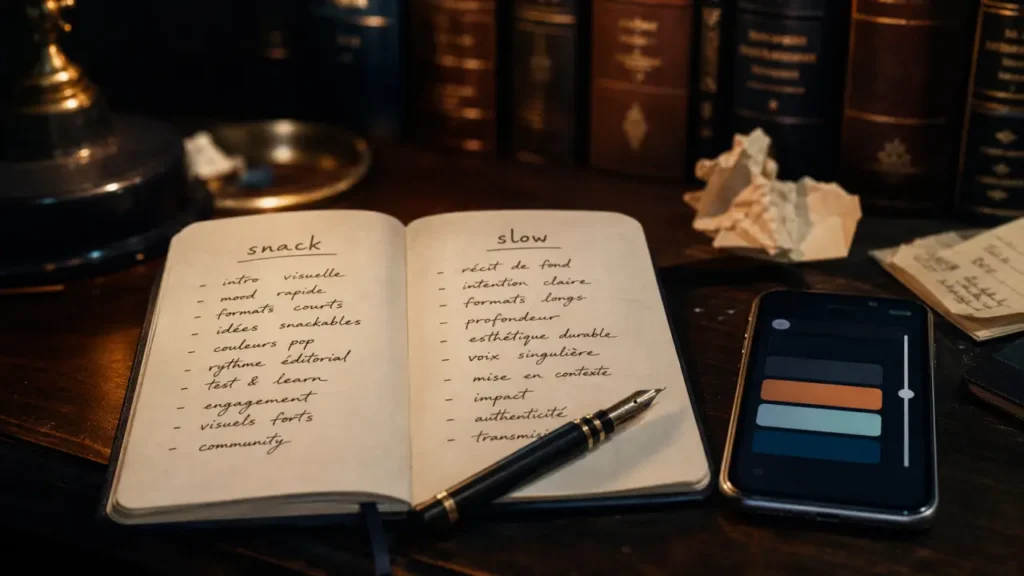 snack
- intro visuelle
- mood rapide
- formats courts
- idées snackables
- couleurs pop
- rythme éditorial
- test & learn
- engagement
- visuels forts
- community
slow
- récit de fond
- intention claire
- formats longs
- profondeur
- esthétique durable
- voix singulière
- mise en contexte
- impact
- authenticité